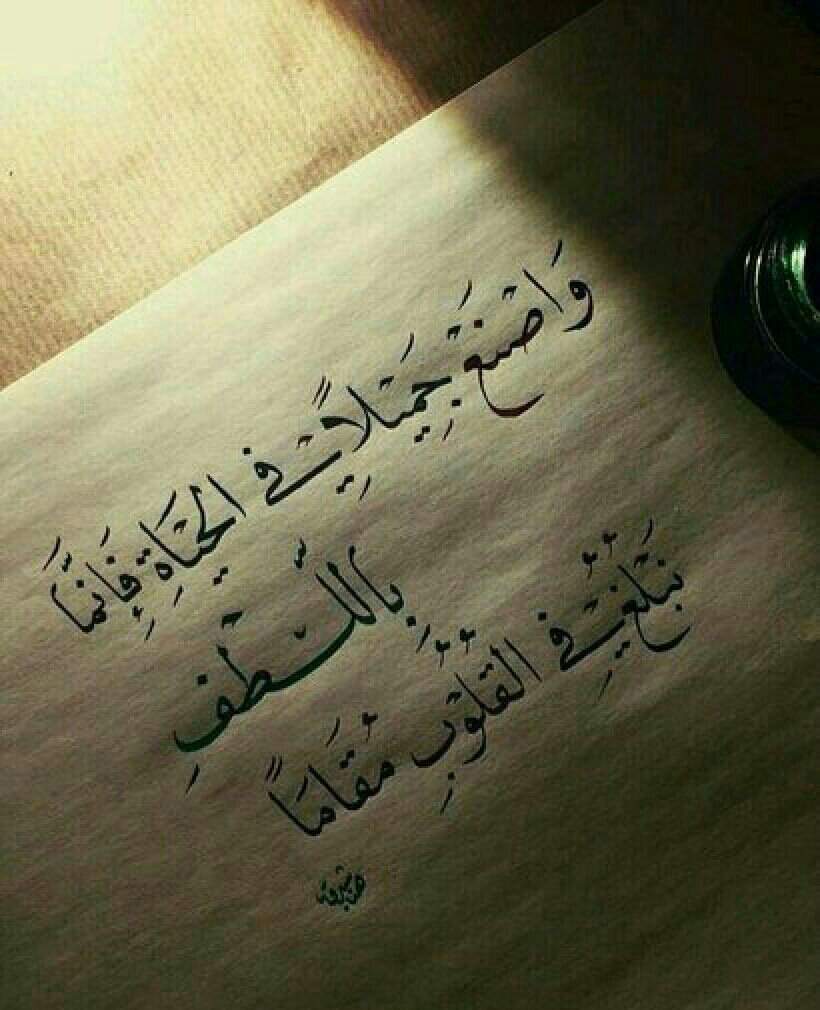 وَاصْنَعْ جَمِيْلًا فِيْ الحْيَاةِ فَإِنمَّا
بِاللُّطْفِ
نَبْلُغُ فِيْ الْقُلُوْبِ مُقَامَاً